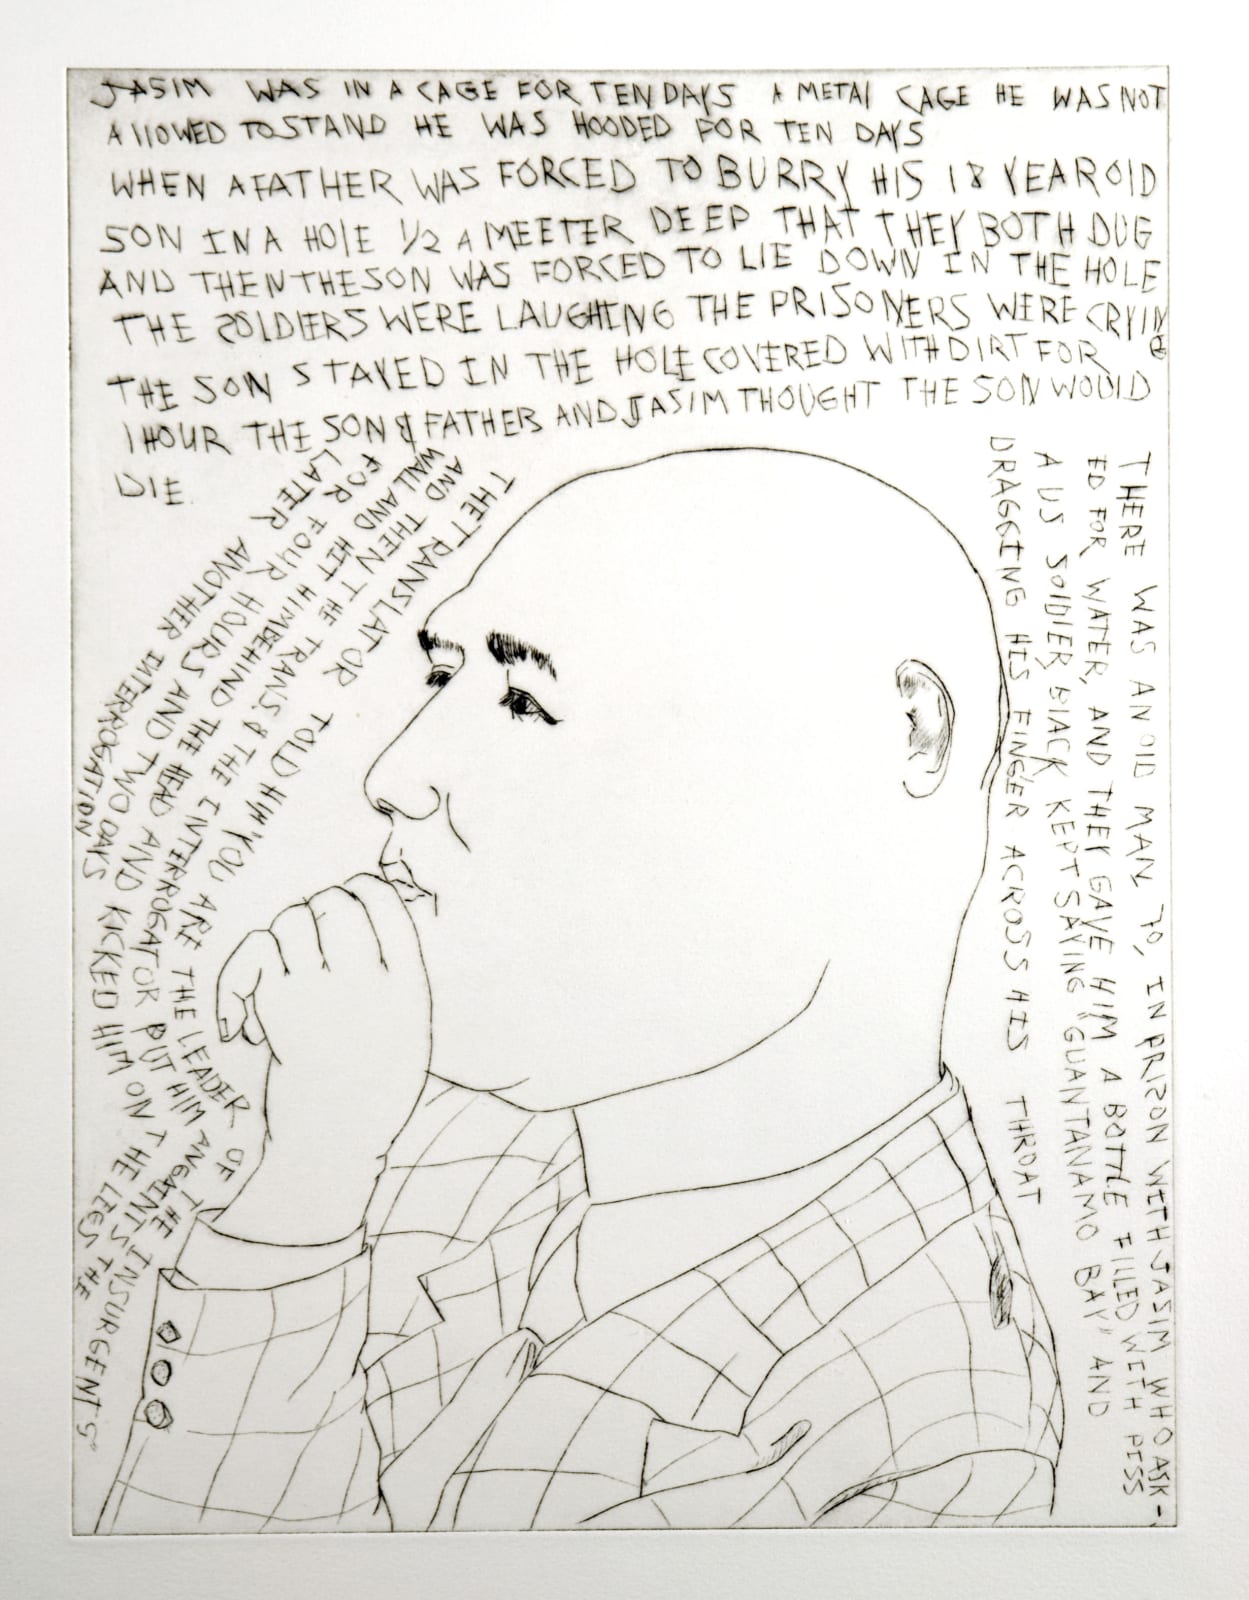 JASIM WAS IN A CAGE FOR TEN DAYS A METAL CAGE HE WAS NOT
ALLOWED TO STAND HE WAS HOODED FOR TEN DAYS
WHEN A FATHER WAS FORCED TO BURRY HIS 18 YEAR OLD
SON IN A HOLE 1/2 A MEETER DEEP THAT THEY BOTH DUG
AND THEN THE SON WAS FORCED TO LIE DOWN IN THE HOLE
THE SOLDIERS WERE LAUGHING THE PRISONERS WERE CRYING
THE SON STAYED IN THE HOLE COVERED WITH DIRT FOR
1 HOUR THE SON & FATHER AND JASIM THOUGHT THE SON WOULD
DIE.
THERE WAS AN OLD MAN, 70, IN PRIZON WITH JASIM WHO ASK-
ED FOR WATER, AND THEY GAVE HIM A BOTTLE FILLED WITH PISS
A US SOLDIER BLACK KEPT SAYING "GUANTANAMO BAY" AND
DRAGGING HIS FINGER ACROSS HIS THROAT
THE TRANSLATOR TOLD HIM "YOU ARE THE LEADER OF THE INSURGENTS"
AND THEN THE TRANS. & THE INTERROGATOR PUT HIM ANGAINTS THE
WALL AND HIT HIM BEHIND THE HEAD AND KICKED HIM ON THE LEGS
FOR FOUR HOURS AND TWO DAYS
LATER ANOTHER INTERROGATION